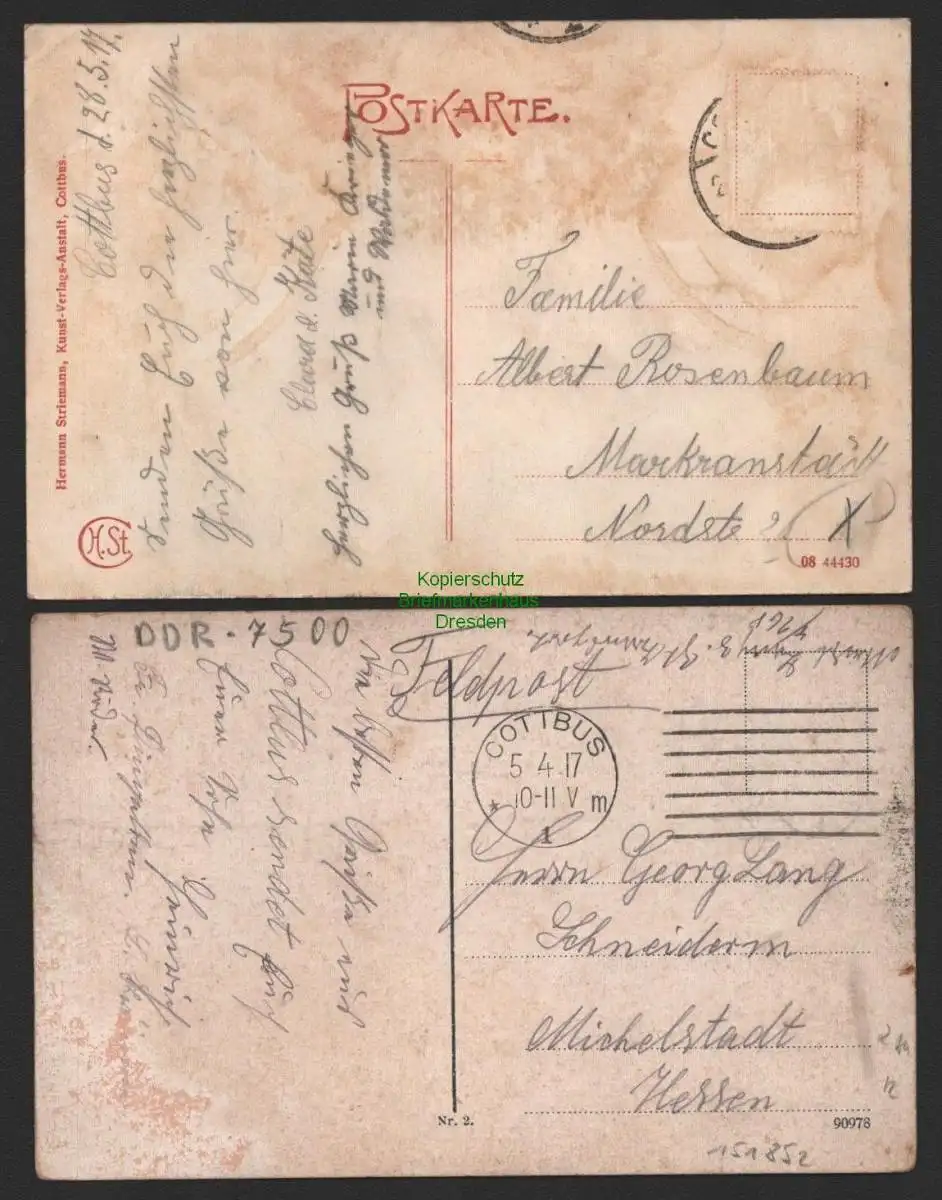 POSTKARTE.
Hermann Striemann, Kunst-Verlags-Anstalt, Cottbus.
H.St
Cottbus d. 28.5.17.
Senden Euch die herzlichsten
Grüße von hier
Clara d. Kate
Herzlichen Gruß Maria
und
Familie
Albert Rosenbaum
Markranstädt
Nordstr
X
08 44430
Kopierschutz
Briefmarkenhaus
Dresden
DDR-7500
Feldpost
COTTBUS
5 4.17
10-11 V m
1
Die besten Grüße aus
Cottbus sendet Euch
Euer Sohn
Heinrich
Herrn Georg Lang
Schneiderm
Michelstadt
Hessen
Nr. 2.
90978
151852